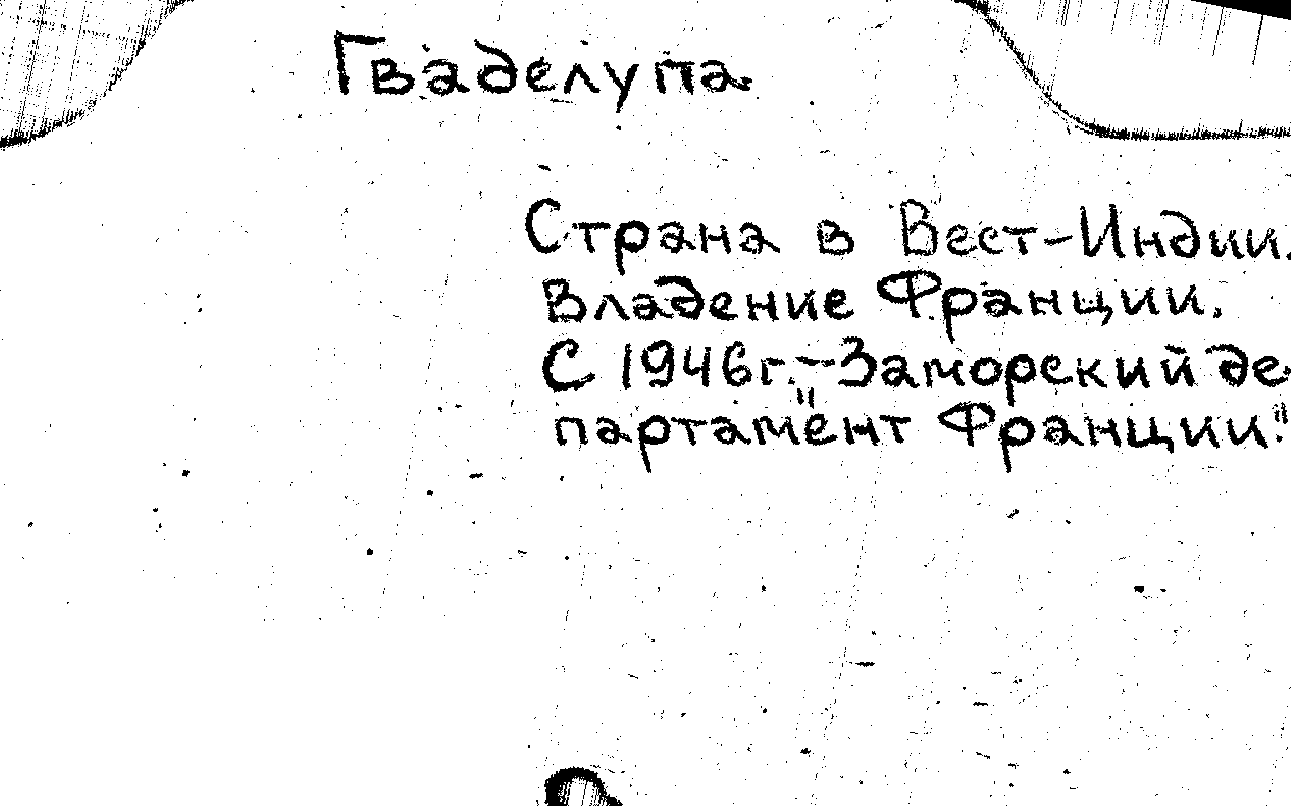 Гваделупа
Страна в Вест-Индии.
Владение Франции.
С 1946г.-"Заморский де-
партамент Франции."